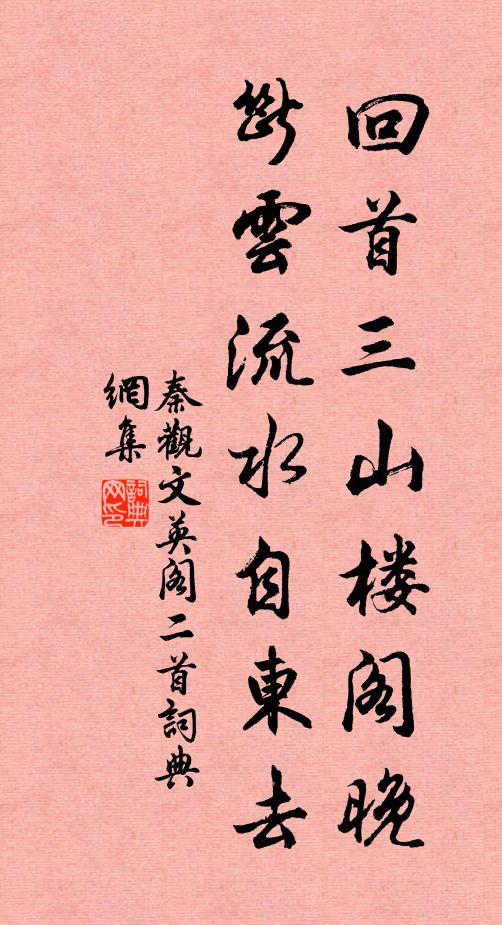 回首三山楼阁晚
断雲流水自東去
秦觀文英阁二首詞典
網集
詞典
网印